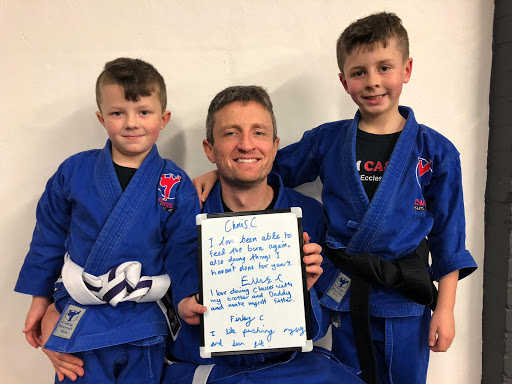 Chris C
I love been able to
feel the burn again,
also doing things I
haven't done for years.
Ellis C
I love doing classes with
my brother and Daddy
and make myself fitter.
Finley C
I like pushing myself
and keep fit.
M CAS
Eccles